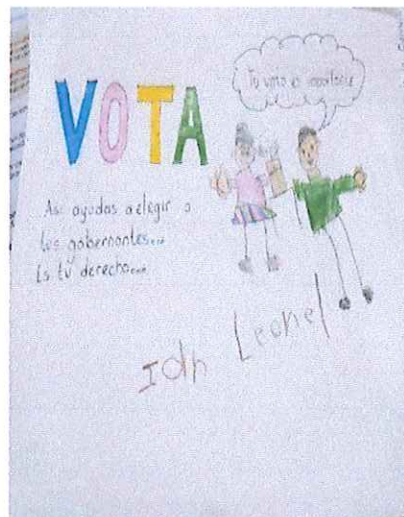 VOTA
Tu voto es importante
Asi ayudas a elegir a
los gobernantes...
Es tu derecho...
Idn Leonel